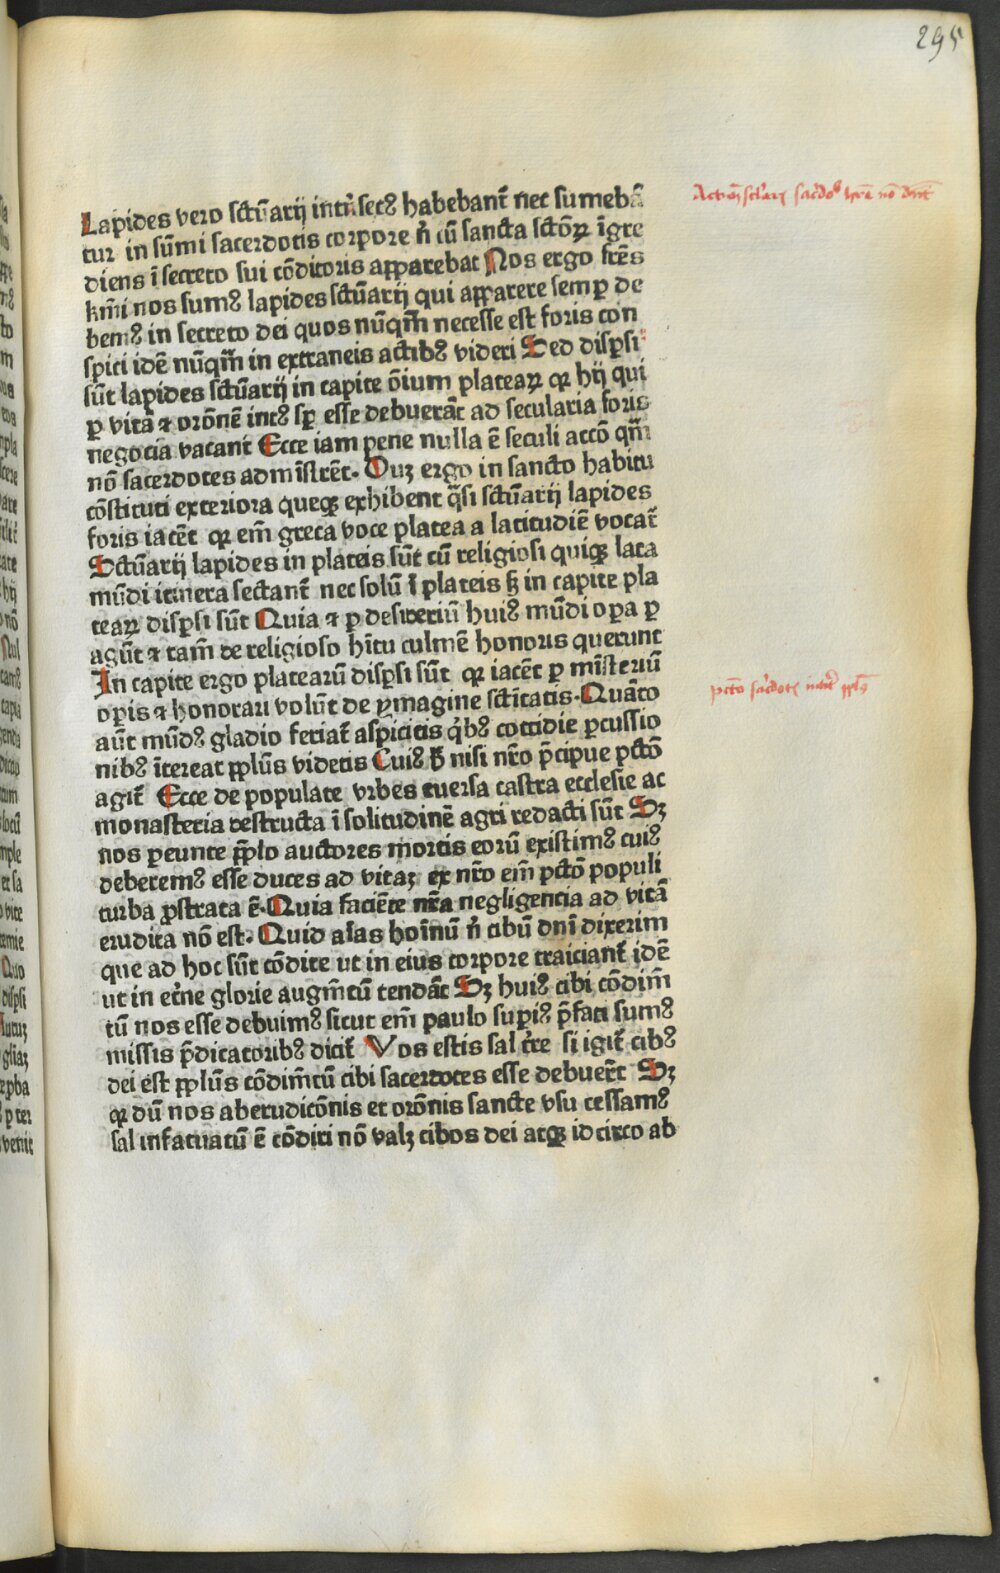 295
Lapides vero sctũarij intr̃secꝰ habebant̃ nec sumebã
Actiõẽ
tur in sũmi sacerdotis corpore ñ cũ sancta sctõꝝ ĩgre
diens ĩ secreto sui cõditoris apparebat Nos ergo fr̃es
kr̃mi nos sumꝰ lapides sctũarij qui apparere semꝑ de
bemꝰ in secreto dei quos nũqm̃ necesse est foris con
spici idẽ nũqm̃ in extraneis actibꝰ videri Sed disꝑsi
sũt lapides sctũarij in capite õium plateaꝝ qꝛ hij qui
ꝑ vitã ⁊ orõnẽ intꝰ sꝑ esse debuerãt ad secularia foris
negocia vacant Ecce iam pene nulla ẽ seculi accõ qm̃
nõ sacerdotes admĩstrẽt. Duꝫ ergo in sancto habitu
cõstituti exteriora queqꝫ exhibent q̃si sctũarij lapides
foris iacẽt qꝛ em̃ greca voce platea a latitudiẽ vocat̃
Sctũarij lapides in plateis sũt cũ religiosi quiqꝫ lata
mũdi itinera sectant̃ nec solũ ĩ plateis sꝫ in capite pla
teaꝝ disꝑsi sũt Quia ⁊ ꝑ desiderĩũ huiꝰ mũdi oꝑa ꝑ
agũt ⁊ tam̃ de religioso hĩtu culmẽ honoris querunt
In capite ergo platearũ disꝑsi sũt qꝛ iacẽt ꝑ mĩsteriũ
oꝑis ⁊ honorari volũt de ymagine sctĩtatis. Quãto
aũt mũdꝰ gladio feriat̃ aspicitis qĩbꝰ cottidie ꝑcussio
nibꝰ ĩtereat pp̃lus videtis Cuiꝰ h̃ nisi nr̃o p̃cipue pctõ
agit̃ Ecce de populate vrbes euersa castra ecclesie ac
monasteria destructa ĩ solitudinẽ agri redacti sũt Sꝫ
nos ꝑeunte pp̃lo auctores mortis eorũ existimꝰ cuiꝰ
deberemꝰ esse duces ad vitaꝫ ex nr̃o em̃ pctõ populi
turba ꝓstrata ẽ. Quia faciẽte nr̃a negligencia ad vitã
erudita nõ est. Quid aĩas hoĩnũ ñ cibũ dnĩ dixerim
que ad hoc sũt cõdite ut in eius corpore traiciant̃ idẽ
ut in et̃ne glorie augm̃tũ tendãt Sꝫ huiꝰ cibi cõdim̃
tũ nos esse debuimꝰ sicut em̃ paulo suꝑiꝰ p̃fati sumꝰ
missis p̃dicatoribꝰ dicit̃ Vos estis sal t̃re si igit̃ cibꝰ
dei est pp̃lus cõdim̃tũ cibi sacerdotes esse debuer̃t Sꝫ
qꝛ dũ nos ab eruditõnis et orõnis sancte vsu cessamꝰ
sal infatuatũ ẽ cõdiri nõ valꝫ cibos dei atqꝫ idcirco ab